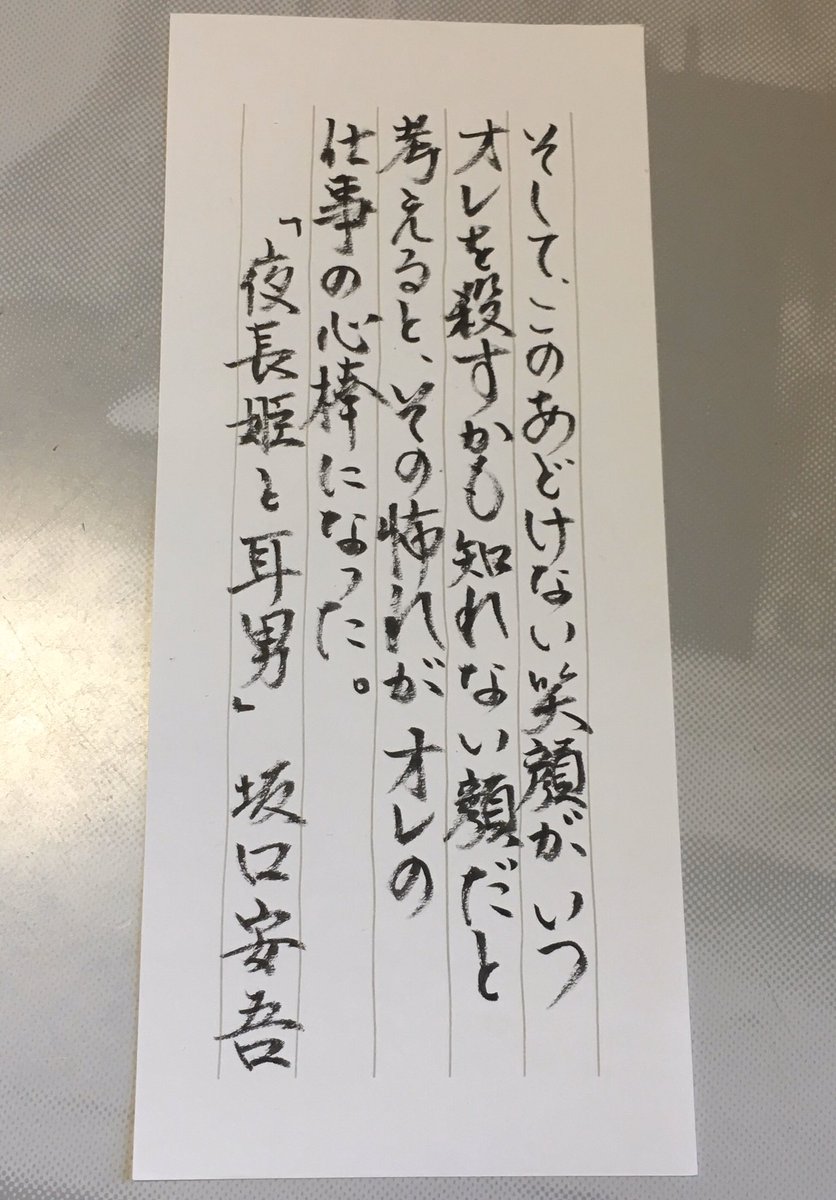 そして、このあどけない笑顔がいつ
オレを殺すかも知れない顔だと
考えると、その怖れがオレの
仕事の心棒になった。
「夜長姫と耳男」 坂口安吾